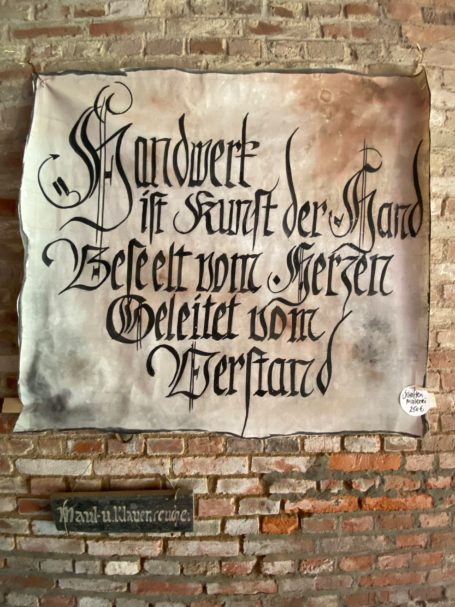 Handwerk
ist Kunst der Hand
Beseelt vom Herzen
Geleitet vom
Verstand
Schriften
malerei
250€
Maul- u. Klauenseuche